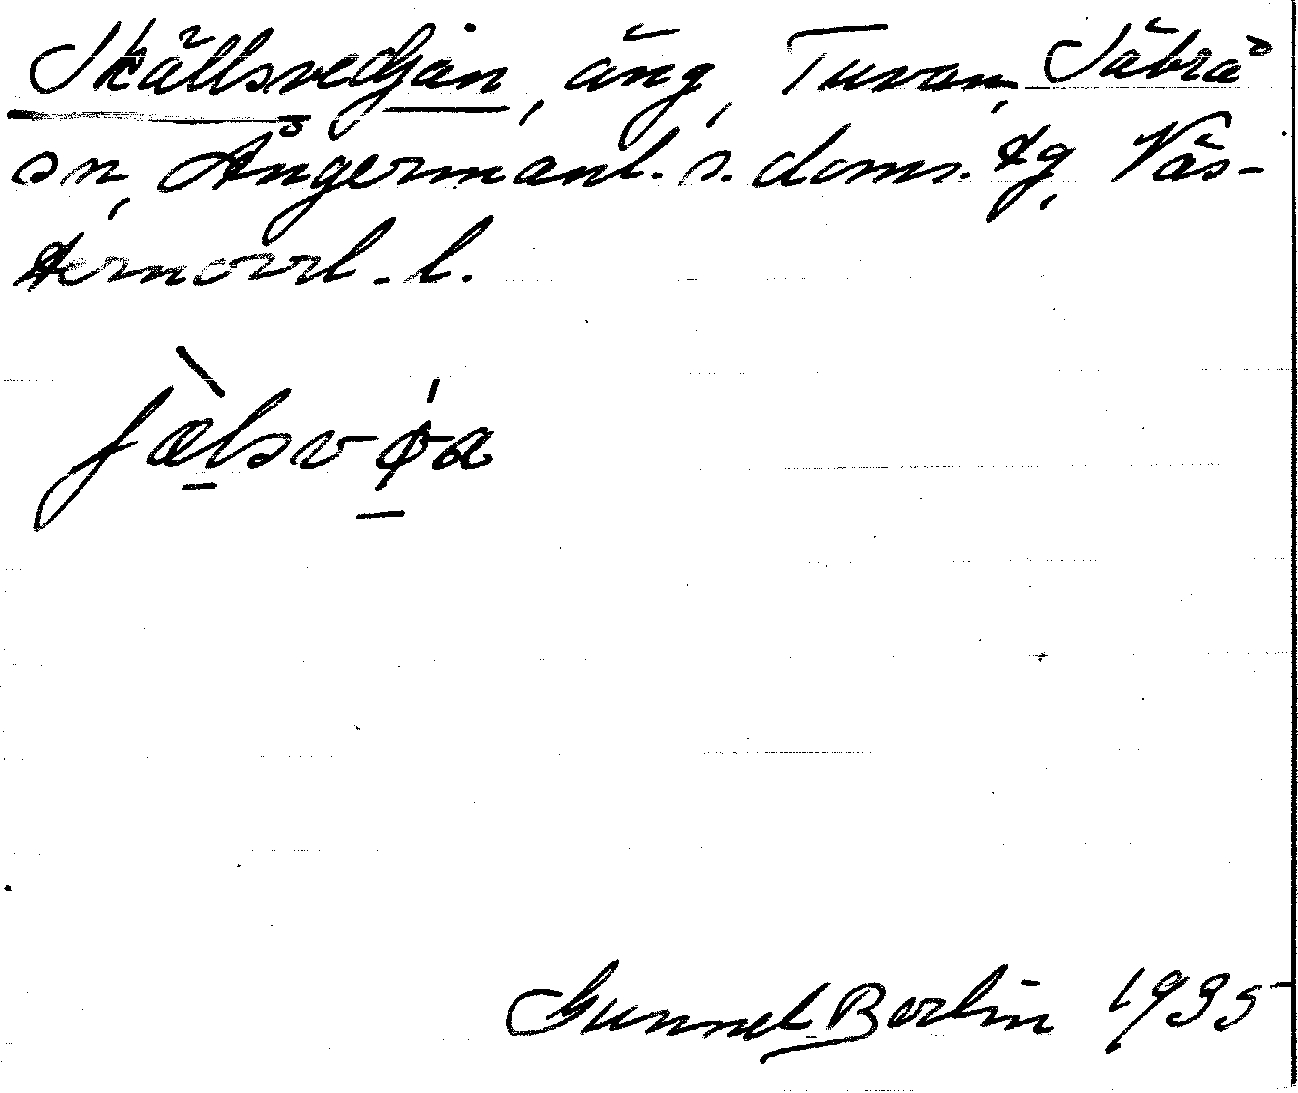 Skällsvedjan, äng, Tuvan, Säbrå
sn, Ångermanl. s. doms. tg, Väs-
ternorrl. l.
fæ̀lsvǿa
Gunnel Berlin 1935